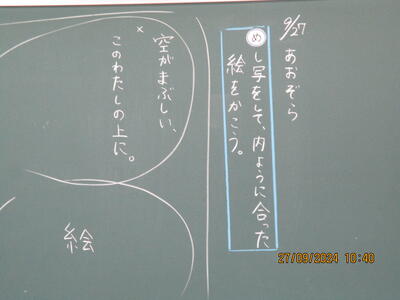 9/27
あおぞら
め
し写をして、内ように合った
絵をかこう。
×
空がまぶしい、
このわたしの上に。
絵
27/09/2024 10:40